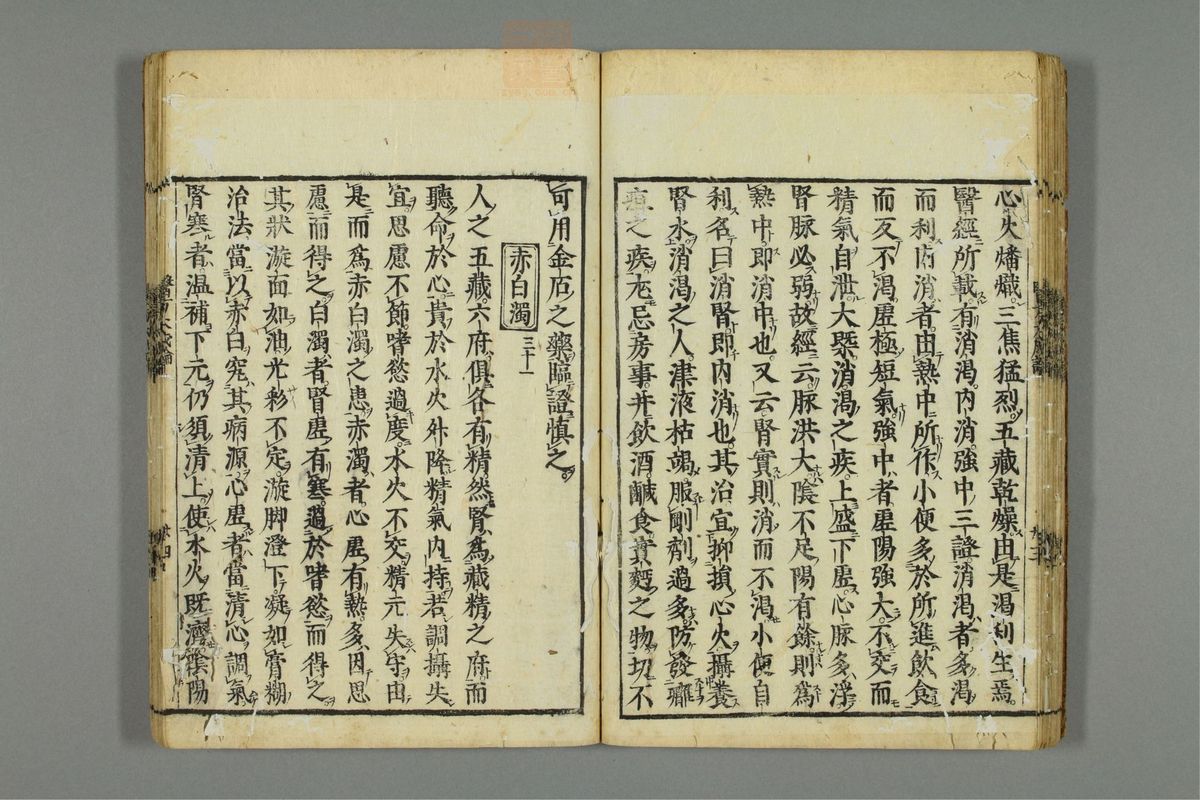 心火燔熾三焦猛烈五藏乾燥由是渴利生焉
醫經所載有消渴内消強中三證消渴者多渴
而利内消者由熱中所作小便多於所進飲食
而反不渴虚極短氣強中者虚陽強大不交而
精氣自泄大槩消渴之疾上盛下虚心脉多浮
腎脉必弱故經云脉洪大陰不足陽有餘則為
熱中即消中也又云腎實則消而不渴小便自
利名曰消腎即内消也其治宜抑損心火攝養
腎水消渴之人津液枯竭服剛劑過多防發癰
疽之疾尤忌房事并飲酒鹹食實麪之物切不
可用金石之藥臨證慎之
赤白濁 三十一
人之五藏六府俱各有精然腎為藏精之府而
聽命於心貴於水火升降精氣内持若調攝失
宜思慮不節嗜慾過度水火不交精元失守由
是而為赤白濁之患赤濁者心虚有熱多因思
慮而得之白濁者腎虚有寒過於嗜慾而得之
其狀漩面如油光彩不定漩脚澄下凝如膏糊
治法當以赤白究其病源心虚者當清心調氣
腎寒者温補下元仍須清上使水火既濟陰陽